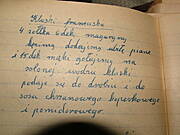 Kluski francuskie
4 żółtka 6 dek margaryny
ubijemy dodajemy ubitą pianę
i 15 dek mąki gotujemy na
solonej wodzie kluski
podaje się do drobiu i do
sosu chrzanowego koperkowego
i pomidorowego.